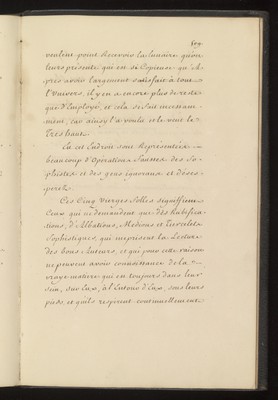 veulent point Recevoir la lumiere qu'on
leurs présente, qui est si Copieuse qu'A-
près avoir largement satisfait à tout
l'Univers, il y en a encore plus de reste
que d'Employé, et cela se fait
car ainsy l'a voulu et le veut le
Tres haut.
En cet Endroit sont Representées
beaucoup d'Operations fausses des So-
phistes et des gens ignorans et déses-
perés.
Ces Cinq Vierges folles signifient
Ceux qui ne demandent que des Rubifica-
tions, d'Albations, Mediums et Tiercelets
Sophistiques, qui meprisent la Lecture
des bons Auteurs, et qui pour cette raison
ne peuvent avoir connoissance de la
vraye matiere qui est toujours dans leur
sein, sur Eux, à l'Entour d'Eux, sous leurs
pieds, et qu'ils respirent continuellement